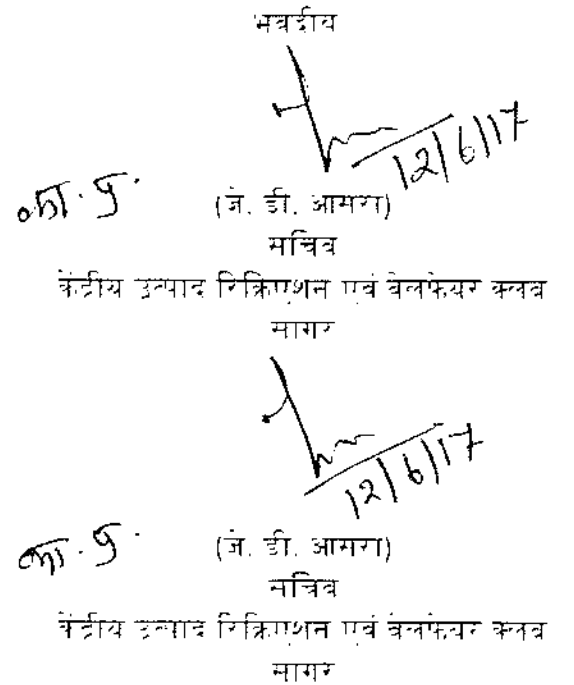 भवदीय
12/6/17
का. प्र.
(जे. डी. आसरा)
सचिव
केंद्रीय उत्पाद रिक्रिएशन एवं वेलफेयर क्लब
सागर
12/6/17
का. प्र.
(जे. डी. आसरा)
सचिव
केंद्रीय उत्पाद रिक्रिएशन एवं वेलफेयर क्लब
सागर